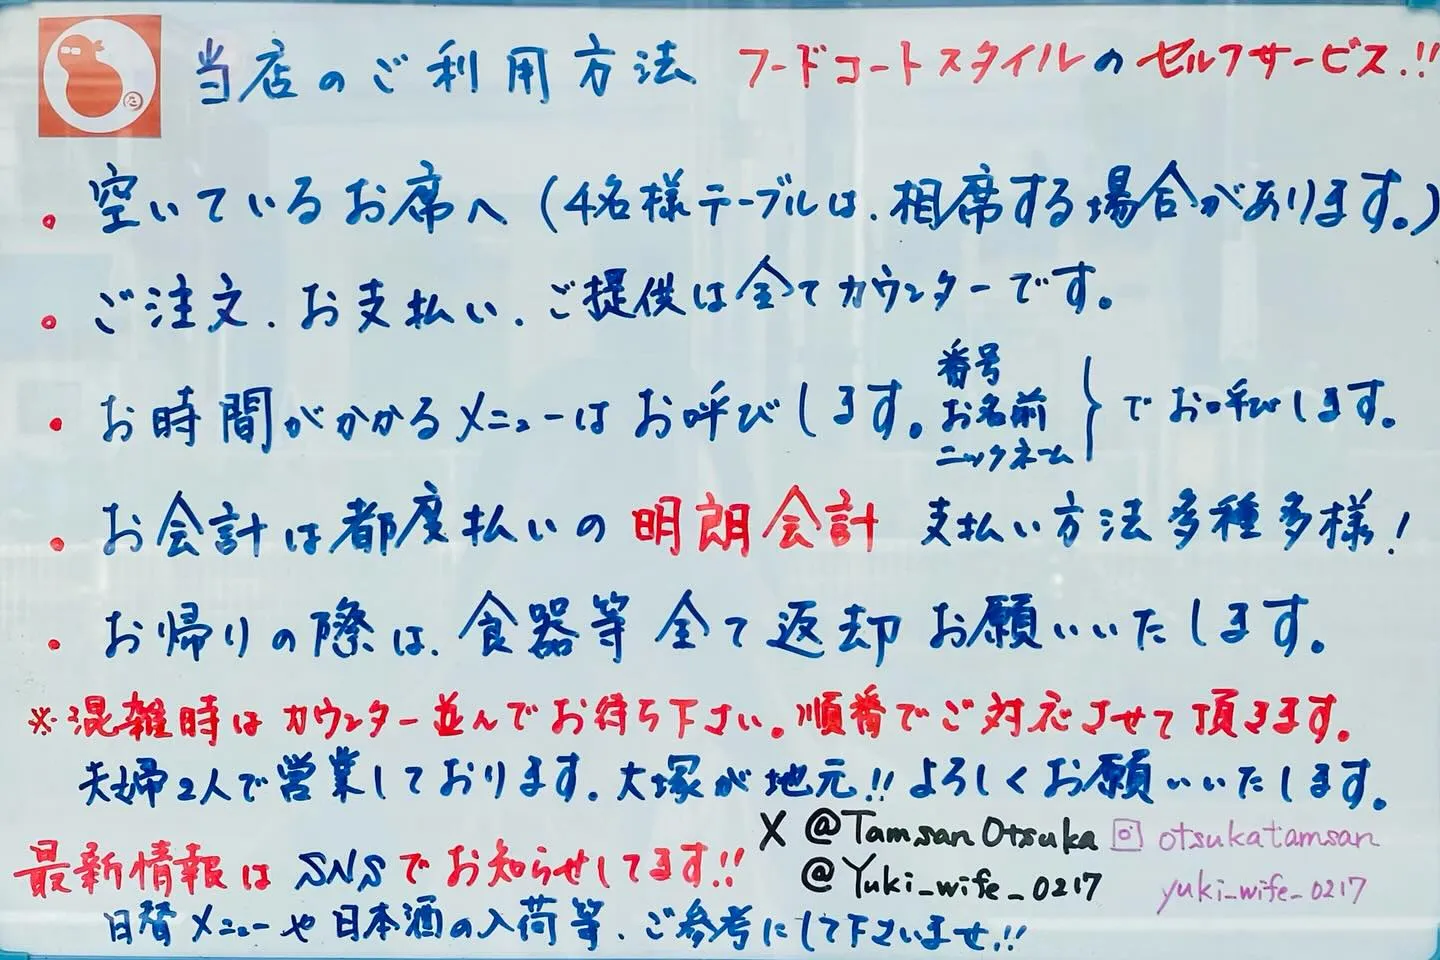 当店のご利用方法 フードコートスタイルのセルフサービス!!
・空いているお席へ(4名様テーブルは、相席する場合があります。)
・ご注文、お支払い、ご提供は全てカウンターです。
・お時間がかかるメニューはお呼びします。番号 お名前 ニックネーム}でお呼びします。
・お会計は都度払いの明朗会計 支払い方法多種多様!
・お帰りの際は、食器等全て返却お願いいたします。
※混雑時はカウンター並んでお待ち下さい。順番でご対応させて頂きます。
夫婦2人で営業しております。大塚が地元!!よろしくお願いいたします。
最新情報はSNSでお知らせしてます!!
X @TamsanOtsuka otsukatamsan
@Yuki_wife_0217 yuki_wife_0217
日替メニューや日本酒の入荷等、ご参考にして下さいませ!!